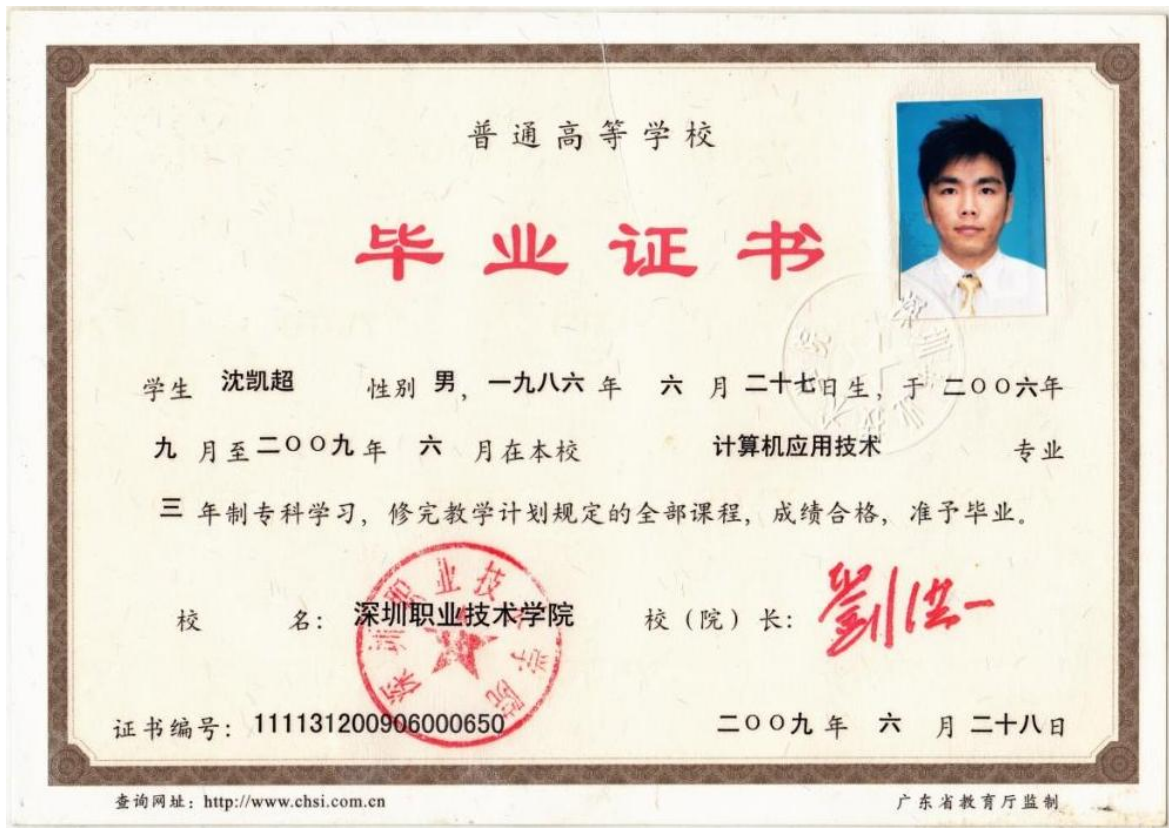 普通高等学校
毕业证书
学生 沈凯超 性别 男，一九八六 年 六 月 二十七日生，于 二〇〇六年
九 月至 二〇〇九 年 六 月在本校 计算机应用技术 专业
三 年制专科学习，修完教学计划规定的全部课程，成绩合格，准予毕业。
校 名：深圳职业技术学院 校（院）长：劉洪一
深圳职业技术学院
证书编号：111131200906000650 二〇〇九 年 六 月 二十八日
查询网址：http://www.chsi.com.cn 广东省教育厅监制